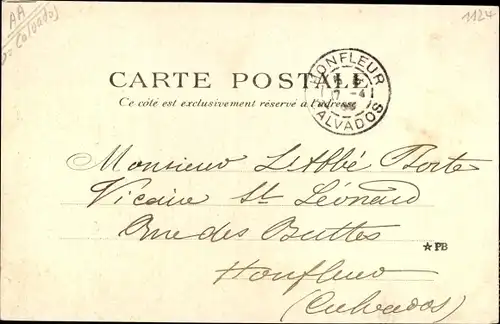 AA
(Calvados)
1124
HONFLEUR
CALVADOS
CARTE POSTALE
Ce côté est exclusivement réservé à l'adresse
Monsieur L'Abbé Porte
Vicaire St Léonard
Rue des Buttes
★PB
Honfleur
(Calvados)